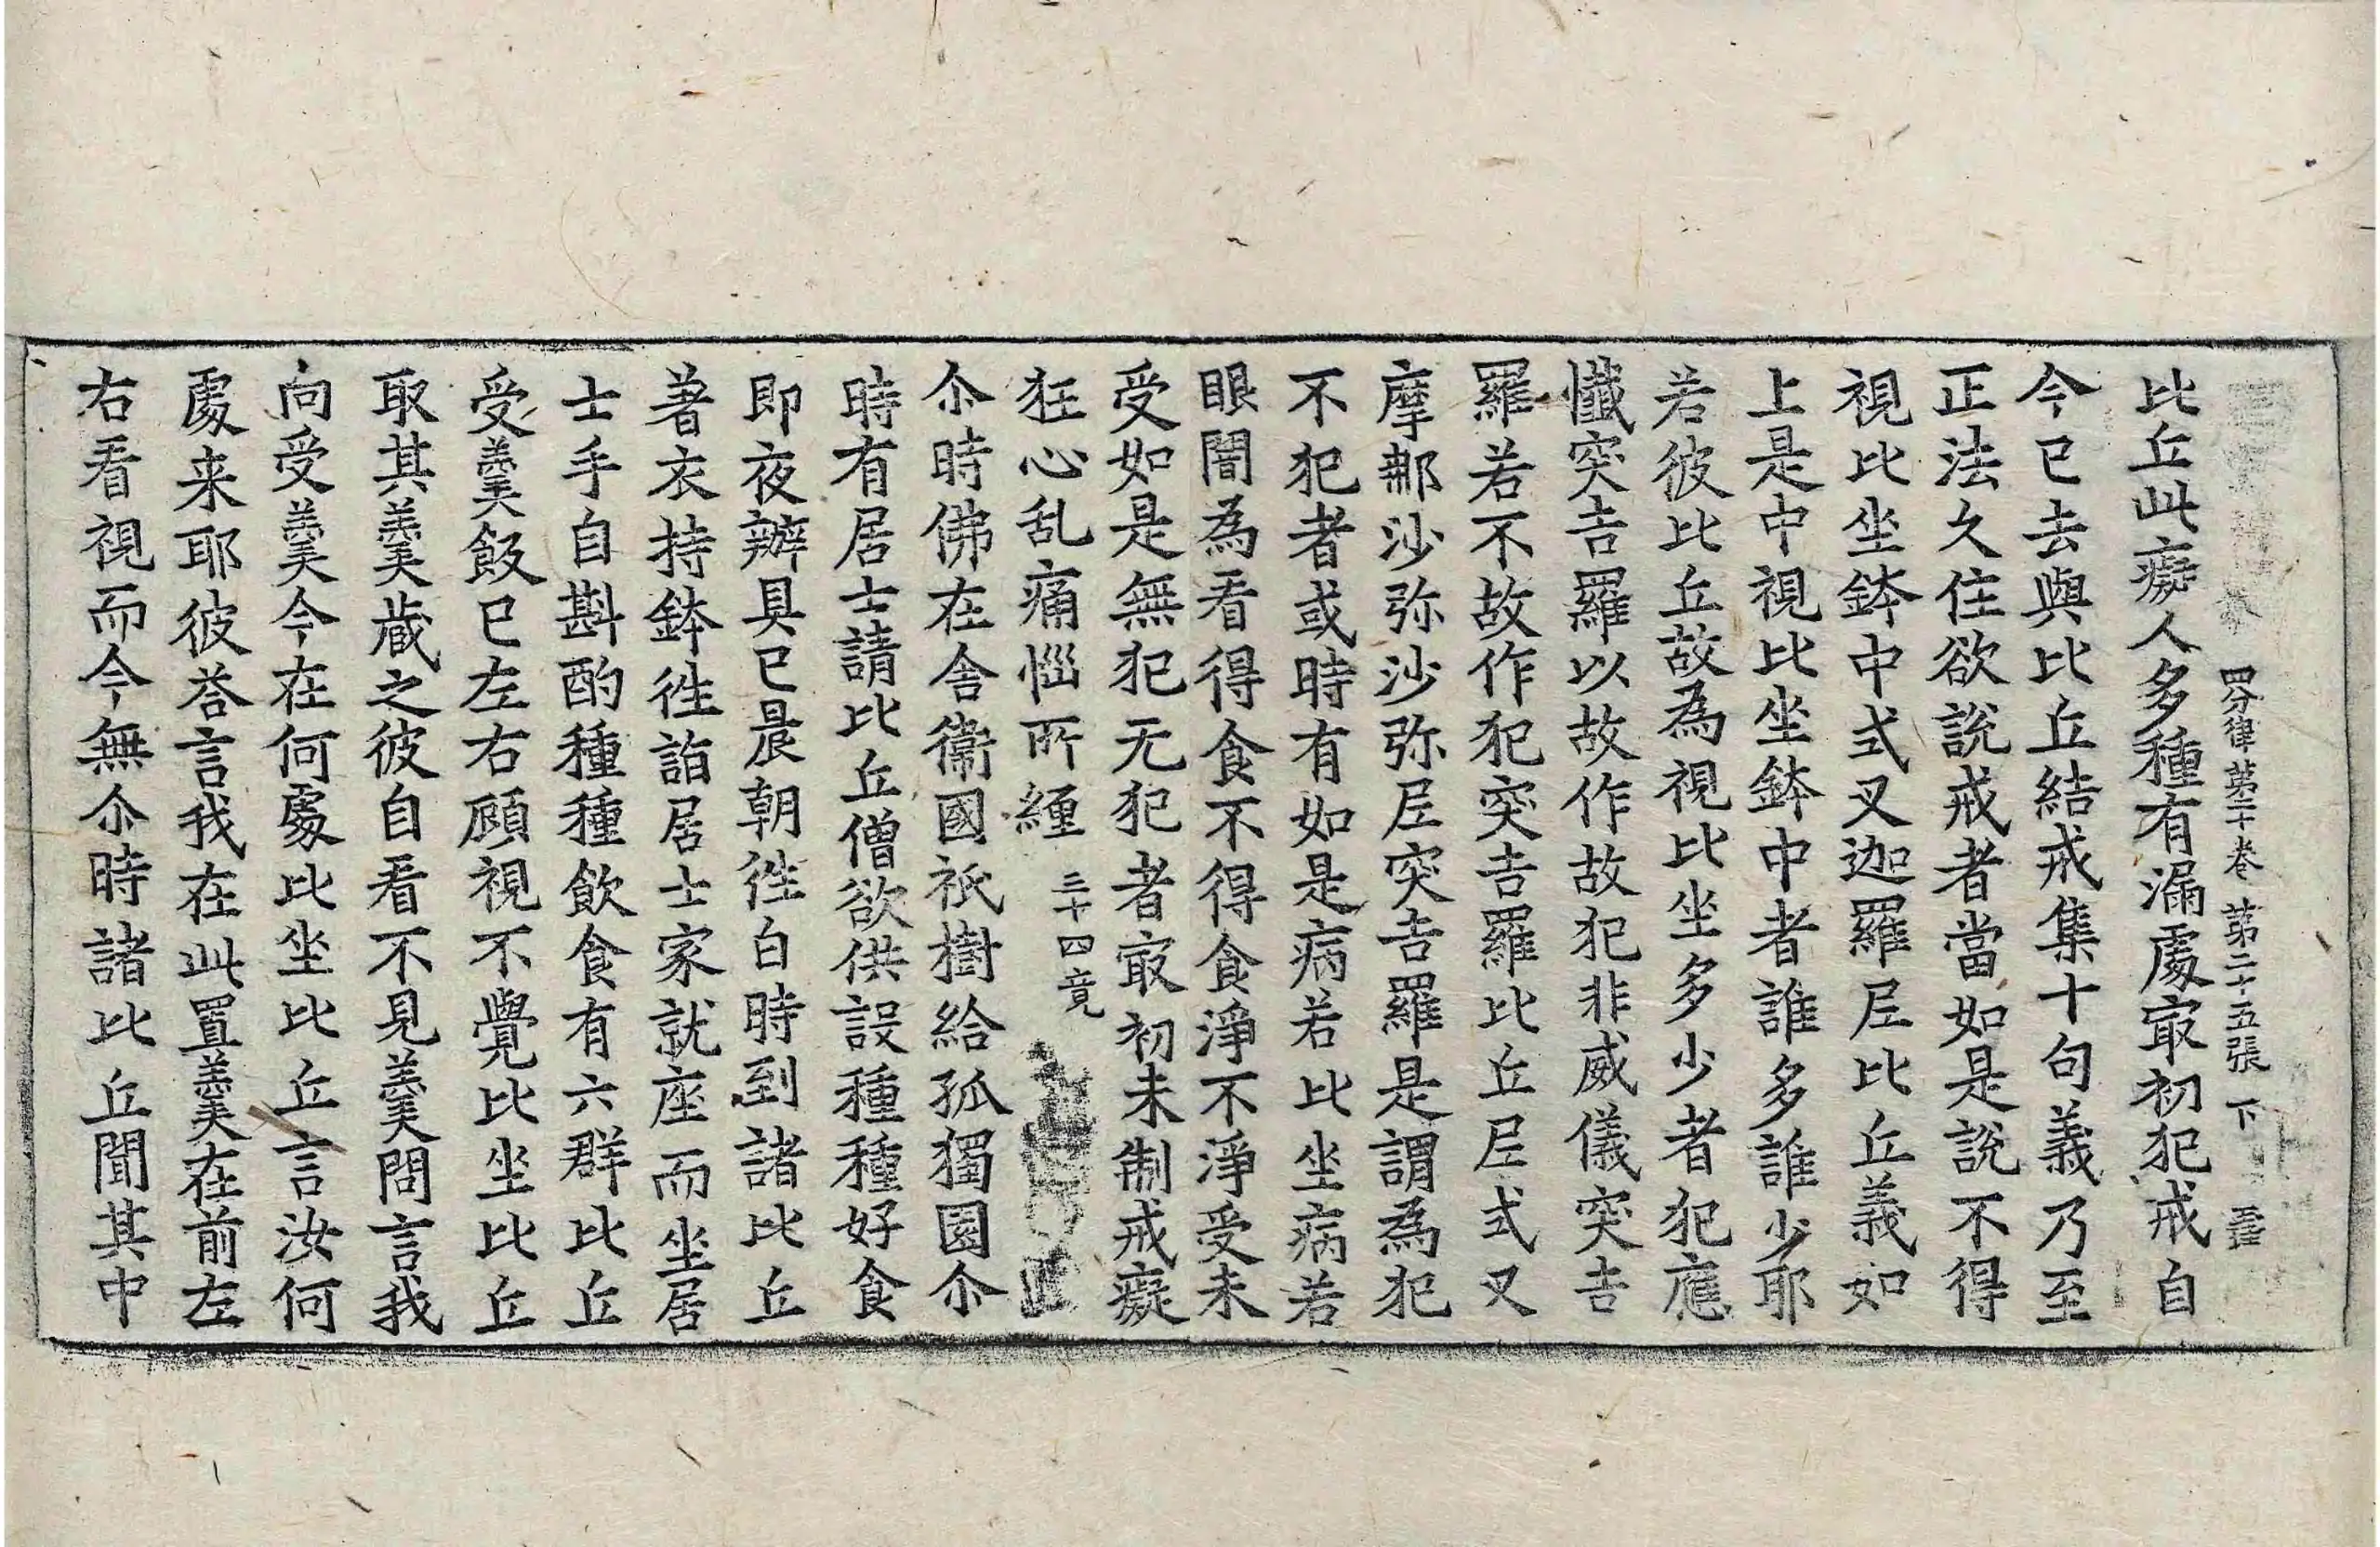 四分律第二十卷 第二十五張 下
比丘此癡人多種有漏處㝡初犯戒自
今已去與比丘結戒集十句義乃至
正法久住欲說戒者當如是說不得
視比坐鉢中式叉迦羅尼比丘義如
上是中視比坐鉢中者誰多誰少耶
若彼比丘故為視比坐多少者犯應
懺突吉羅以故作故犯非威儀突吉
羅若不故作犯突吉羅比丘尼式叉
摩那沙弥沙弥尼突吉羅是謂為犯
不犯者或時有如是病若比坐病若
眼闇為看得食不得食淨不淨受未
受如是無犯无犯者㝡初未制戒癡
狂心乱痛惱所纏 三十四竟
尒時佛在舍衞國祇樹給孤獨園尒
時有居士請比丘僧欲供設種種好食
即夜辦具已晨朝徃白時到諸比丘
著衣持鉢徃詣居士家就座而坐居
士手自斟酌種種飲食有六群比丘
受羹飯已左右顧視不覺比坐比丘
取其羹蔵之彼自看不見羹問言我
向受羹今在何處比坐比丘言汝何
處来耶彼荅言我在此置羹在前左
右看視而今無尒時諸比丘聞其中